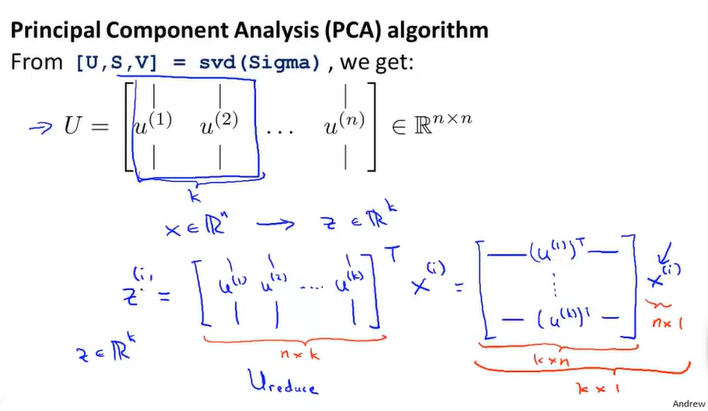 Principal Component Analysis (PCA) algorithm
From [U,S,V] = svd(Sigma), we get:
→ U = [ u^(1) u^(2) … u^(n) ] ∈ ℝ^{n×n}
k
x ∈ ℝ^n → z ∈ ℝ^k
z^(i) = [ u^(1) u^(2) .... u^(k) ]^T x^(i) = [ — (u^(1))^T — ⋮ — (u^(k))^T — ] x^(i)
z ∈ ℝ^k
n × k
k × n
n × 1
U reduce
k × 1
Andrew